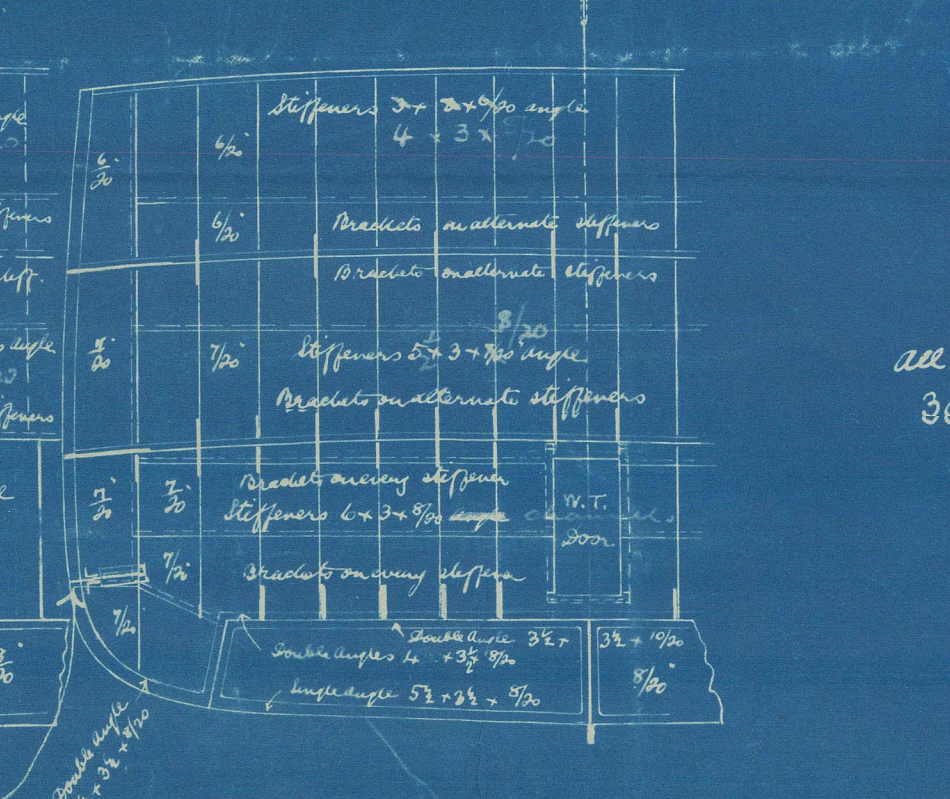 Stiffeners 3 × 6/20 angle
4 × 3 ×
6/20"
6/20"
6/20"
Brackets on alternate stiffeners
Brackets on alternate stiffeners
8/20
7/20"
Stiffeners 5 1/2 × 3 × 7/20" angle
Brackets on alternate stiffeners
Brackets on every stiffener
7/20"
7/20"
Stiffeners 6 × 3 × 8/20 angle channels
W.T.
Door
7/20"
Brackets on every stiffener
7/20"
Double Angle 3 1/2 ×
3 1/2 × 10/20
Double Angles 4 × 3 1/2 × 8/20
8/20"
Single angle 5 1/2 × 3 1/2 × 8/20
Double Angle
× 3 1/2 × 8/20
angle
stiff.
angle
all